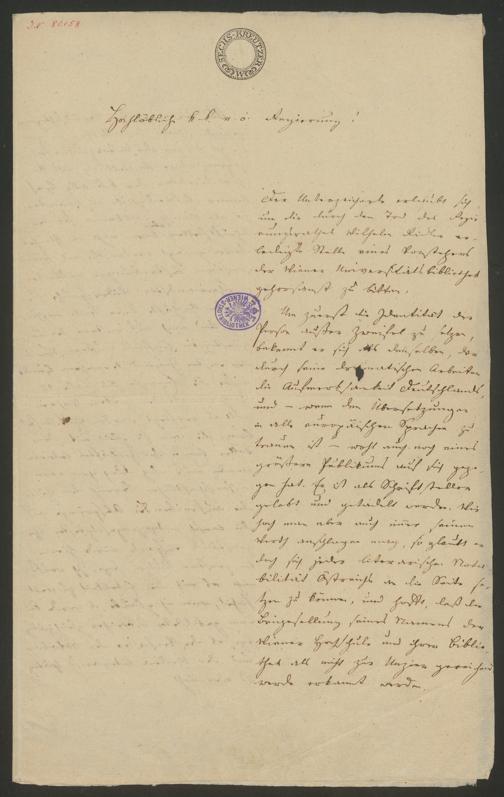 I.N. 80158
SECHS KREUTZER C.M.
Hochlöbliche k. k. n. ö. Regierung!
Der Unterzeichnete erlaubt sich
um die durch den Tod des Regie
rungsrathes Wilhelm Ridler er-
ledigte Stelle eines Vorstehers
der Wiener Universitätsbibliothek
gehorsamst zu bitten.
Um zuerst die Identität der
Person außer Zweifel zu setzen,
bekennt er sich als denselben, der
durch seine dramatischen Arbeiten
die Aufmerksamkeit Deutschlands,
und – wenn den Übersetzungen
in alle europäischen Sprachen zu
trauen ist – wohl auch noch eines
größern Publikums auf sich gezo-
gen hat. Er ist als Schriftsteller
gelobt und getadelt worden. Wie
hoch man aber auch immer seinen
Werth anschlagen mag, so glaubt er
doch sich jeder literarischen Nota
bilität Östreichs an die Seite se-
tzen zu können, und hofft, daß die
Beigesellung seines Namens der
Wiener Hochschule und ihrer Biblio-
thek als nicht zur Unzier gereichend
werde erkannt werden.